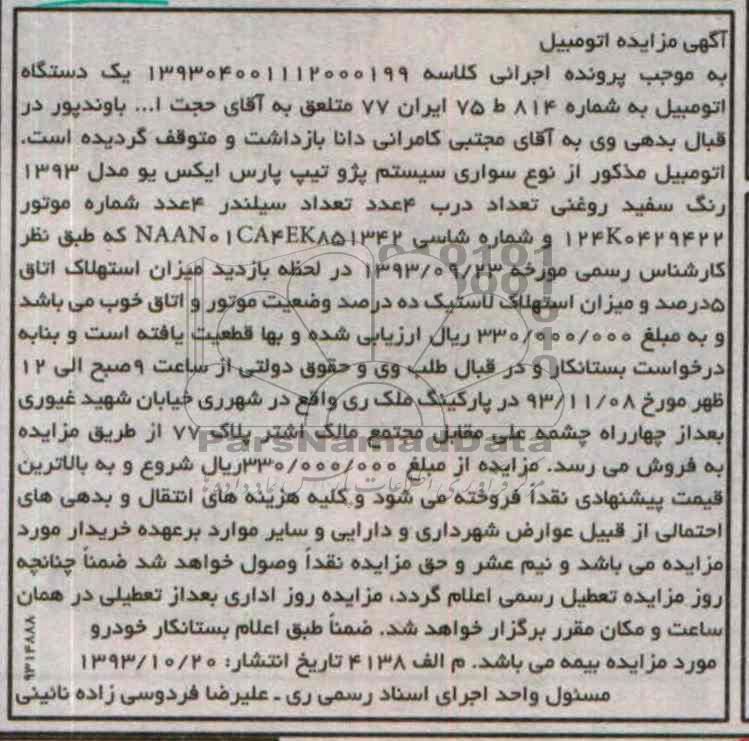 آگهی مزایده اتومبیل
به موجب پرونده اجرائی کلاسه ۱۳۹۳۰۴۰۰۱۱۱۲۰۰۰۱۹۹ یک دستگاه
اتومبیل به شماره ۸۱۴ ط ۷۵ ایران ۷۷ متلعق به آقای حجت ا... باوندپور در
قبال بدهی وی به آقای مجتبی کامرانی دانا بازداشت و متوقف گردیده است.
اتومبیل مذکور از نوع سواری سیستم پژو تیپ پارس ایکس یو مدل ۱۳۹۳
رنگ سفید روغنی تعداد درب ۴عدد تعداد سیلندر ۴عدد شماره موتور
۱۲۴K۰۴۲۹۴۲۲ و شماره شاسی NAAN۰۱CA۴EK۸۵۱۳۴۲ که طبق نظر
کارشناس رسمی مورخه ۱۳۹۳/۰۹/۲۳ در لحظه بازدید میزان استهلاک اتاق
۵درصد و میزان استهلاک لاستیک ده درصد وضعیت موتور و اتاق خوب می باشد
و به مبلغ ۳۳۰/۰۰۰/۰۰۰ ریال ارزیابی شده و بها قطعیت یافته است و بنابه
درخواست بستانکار و در قبال طلب وی و حقوق دولتی از ساعت ۹صبح الی ۱۲
ظهر مورخ ۹۳/۱۱/۰۸ در پارکینگ ملک ری واقع در شهرری خیابان شهید غیوری
بعداز چهارراه چشمه علی مقابل مجتمع مالک اشتر پلاک ۷۷ از طریق مزایده
به فروش می رسد. مزایده از مبلغ ۳۳۰/۰۰۰/۰۰۰ریال شروع و به بالاترین
قیمت پیشنهادی نقداً فروخته می شود و کلیه هزینه های انتقال و بدهی های
احتمالی از قبیل عوارض شهرداری و دارایی و سایر موارد برعهده خریدار مورد
مزایده می باشد و نیم عشر و حق مزایده نقداً وصول خواهد شد ضمناً چنانچه
روز مزایده تعطیل رسمی اعلام گردد، مزایده روز اداری بعداز تعطیلی در همان
ساعت و مکان مقرر برگزار خواهد شد. ضمناً طبق اعلام بستانکار خودرو
مورد مزایده بیمه می باشد. م الف ۴۱۳۸ تاریخ انتشار: ۱۳۹۳/۱۰/۲۰
مسئول واحد اجرای اسناد رسمی ری ـ علیرضا فردوسی زاده نائینی
۹۳۱۴۸۸۸
ParsNamadData